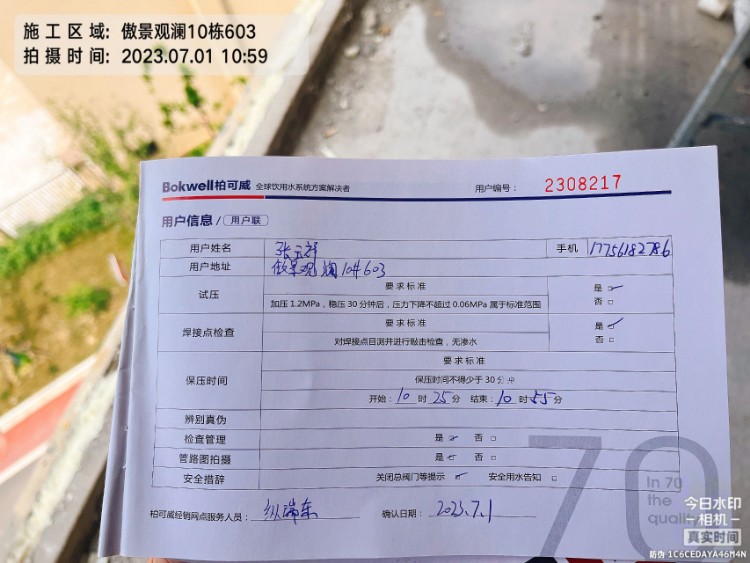 施工区域: 傲景观澜10栋603
拍摄时间: 2023.07.01 10:59
Bokwell柏可威 全球饮用水系统方案解决者 用户编号: 2308217
用户信息 / 用户联
用户姓名 手机 17756182786
用户地址 傲景观澜10#603
试压 要求标准 是 否
加压 1.2MPa，稳压 30 分钟后，压力下降不超过 0.06MPa 属于标准范围
焊接点检查 要求标准 是 否
对焊接点目测并进行敲击检查，无渗水
保压时间 要求标准
保压时间不得少于 30 分钟
开始: 10 时 25 分 结束: 10 时 55 分
辨别真伪
检查管理 是 否
管路图拍摄 是 否
安全措辞 关闭总阀门等提示 安全用水告知
柏可威经销网点服务人员: 纵瑞东 确认日期: 2023.7.1
70
In 70
the
quality
今日水印
相机
真实时间
防伪 1C6CEDAYA46M4N